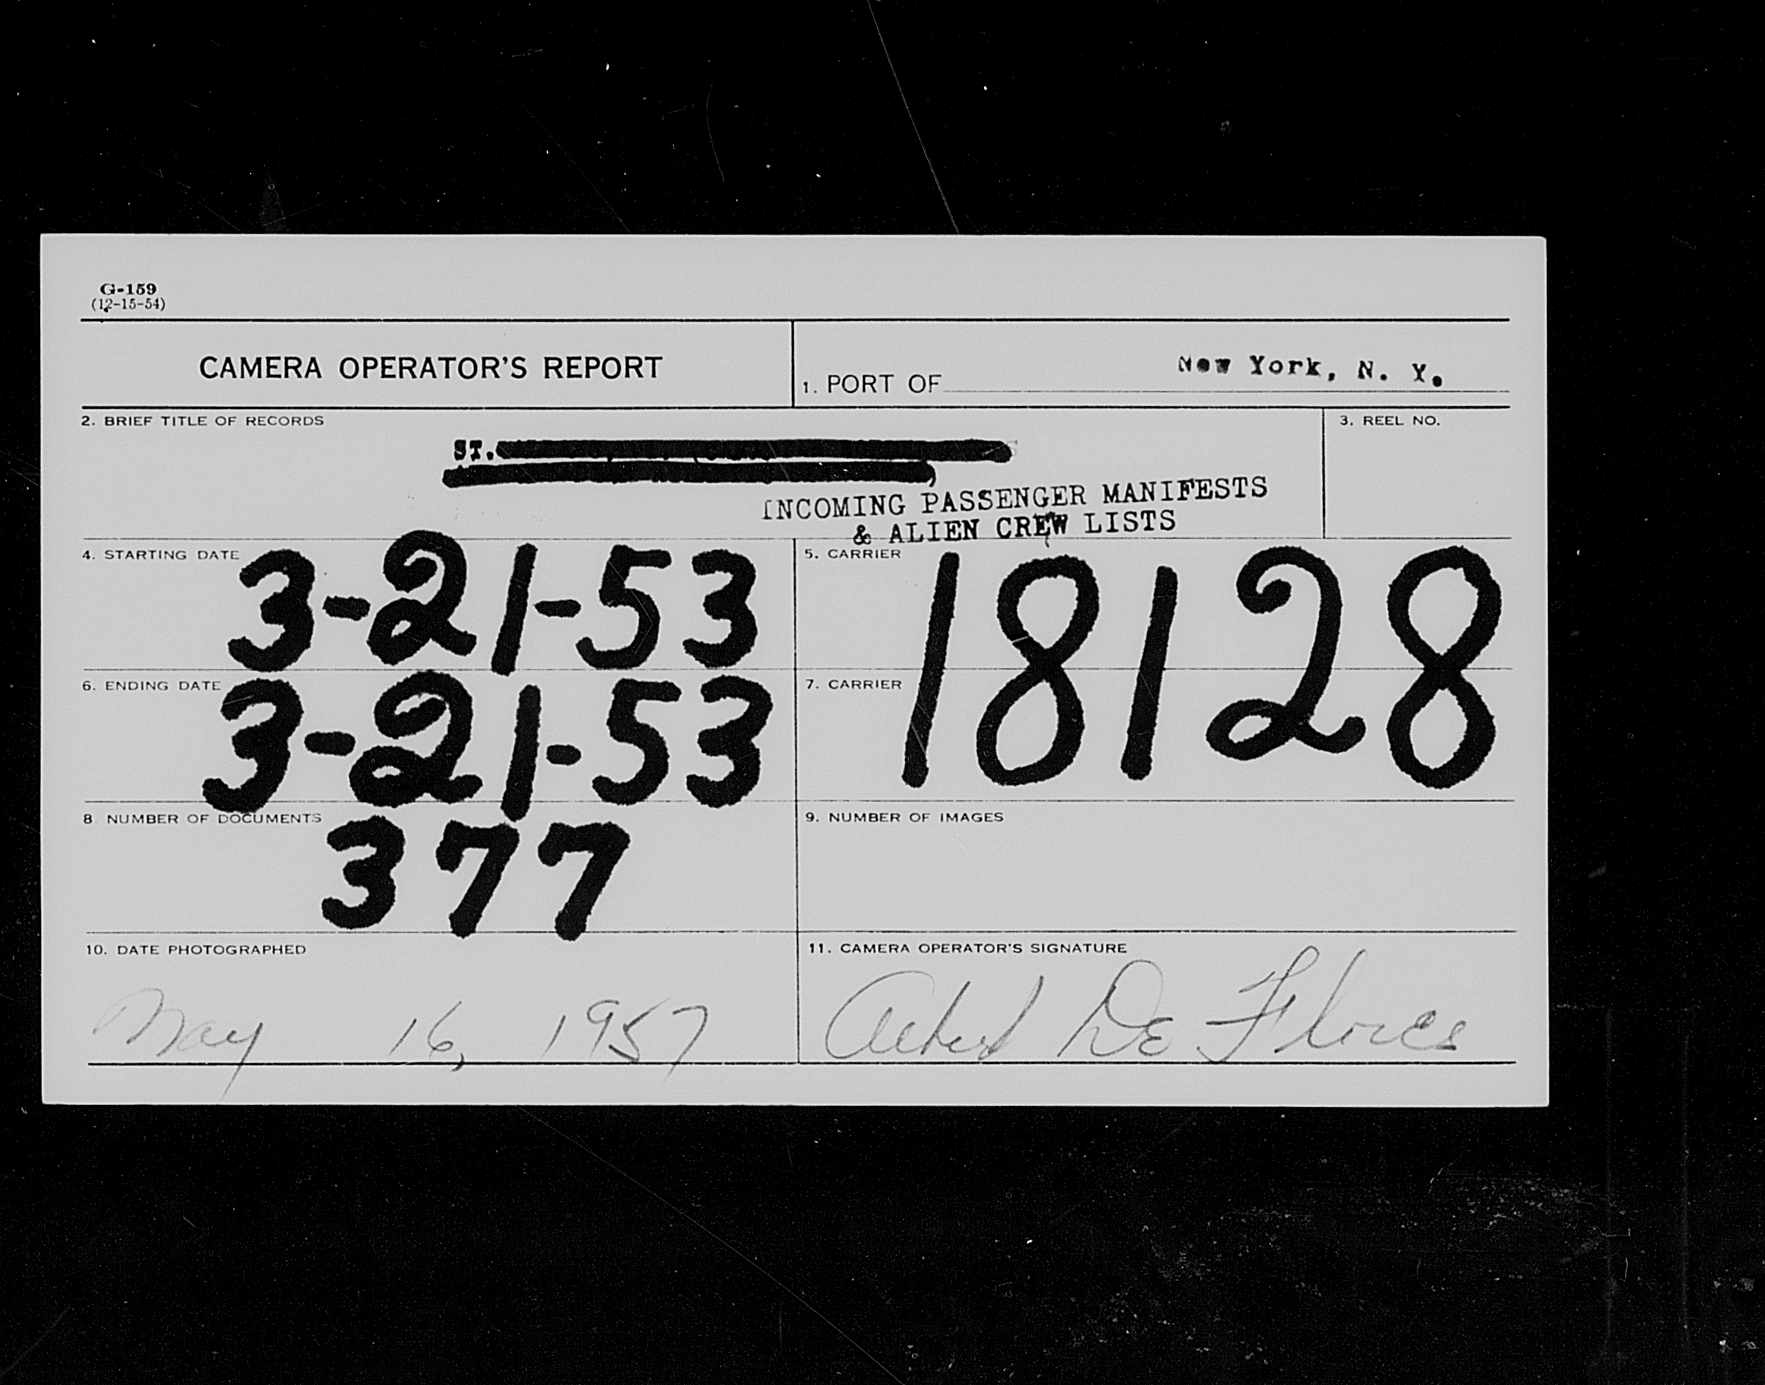 G-159
(12-15-54)
CAMERA OPERATOR'S REPORT
1. PORT OF New York, N. Y.
2. BRIEF TITLE OF RECORDS
3. REEL NO.
ST.
INCOMING PASSENGER MANIFESTS
& ALIEN CREW LISTS
4. STARTING DATE 3-21-53
5. CARRIER 18128
6. ENDING DATE 3-21-53
7. CARRIER
8 NUMBER OF DOCUMENTS 377
9. NUMBER OF IMAGES
10. DATE PHOTOGRAPHED
May 16, 1957
11. CAMERA OPERATOR'S SIGNATURE
De Flores